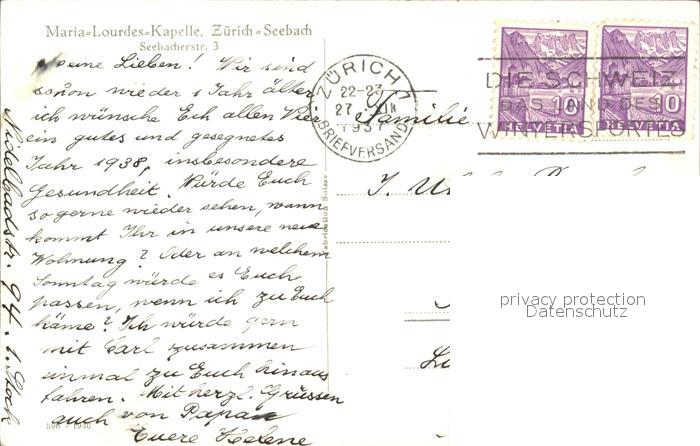 Maria-Lourdes-Kapelle, Zürich-Seebach
Seebacherstr. 3
Meine Lieben! Wir sind
schon wieder 1 Jahr älter
ich wünsche Euch allen Vier
ein gutes und gesegnetes
Jahr 1938, insbesondere
Gesundheit. Würde Euch
so gerne wieder sehen, wann
kommt Ihr in unsere neue
Wohnung? Oder an welchem
Sonntag würde es Euch
passen, wenn ich zu Euch
käme? Ich würde gern
mit Carl zusammen
einmal zu Euch hinaus
fahren. Mit herzl. Grüssen
auch von Papa
Euere Helene
Nidelbadstr. 94. 1. Stock
596 - 1936
Fabrication Suisse
ZÜRICH 1
22-23
27. XII
1937
BRIEFVERSAND
DIE SCHWEIZ
DAS LAND DES
WINTERSPORTES
10
HELVETIA
10
HELVETIA
Familie
J.
privacy protection
Datenschutz